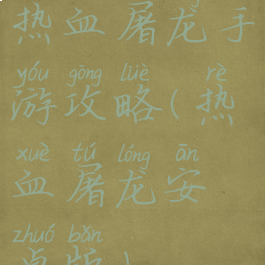 热血屠龙手
yóu gōng lüè rè
游攻略(热
xuè tú lóng ān
血屠龙安
zhuó bǎn
卓版)